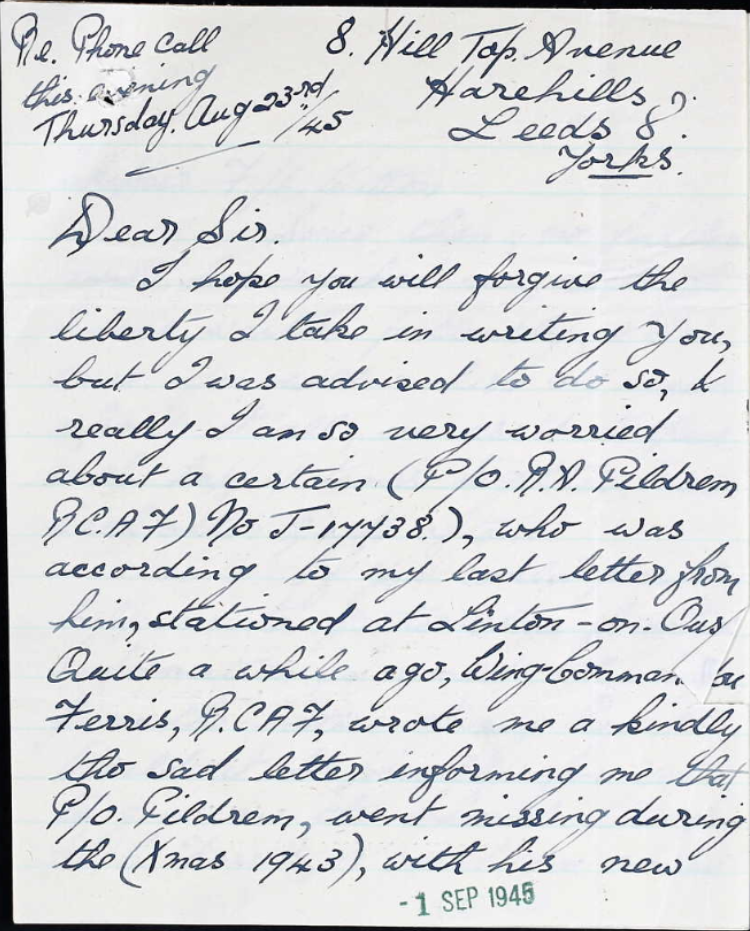 Re. Phone call
this evening
Thursday. Aug 23rd/45
8. Hill Top. Avenue
Harehills,
Leeds 8.
Yorks.
Dear Sir.
I hope you will forgive the
liberty I take in writing you,
but I was advised to do so, &
really I am so very worried
about a certain (P/O. R.A. Pildrem
R.C.A.F) No J-17738.), who was
according to my last letter from
him, stationed at Linton-on-Ous
Quite a while ago, Wing-Comman
Ferris, R.C.A.F, wrote me a kindly
tho sad letter informing me that
P/O. Pildrem, went missing during
the (Xmas 1943), with his new
- 1 SEP 1945